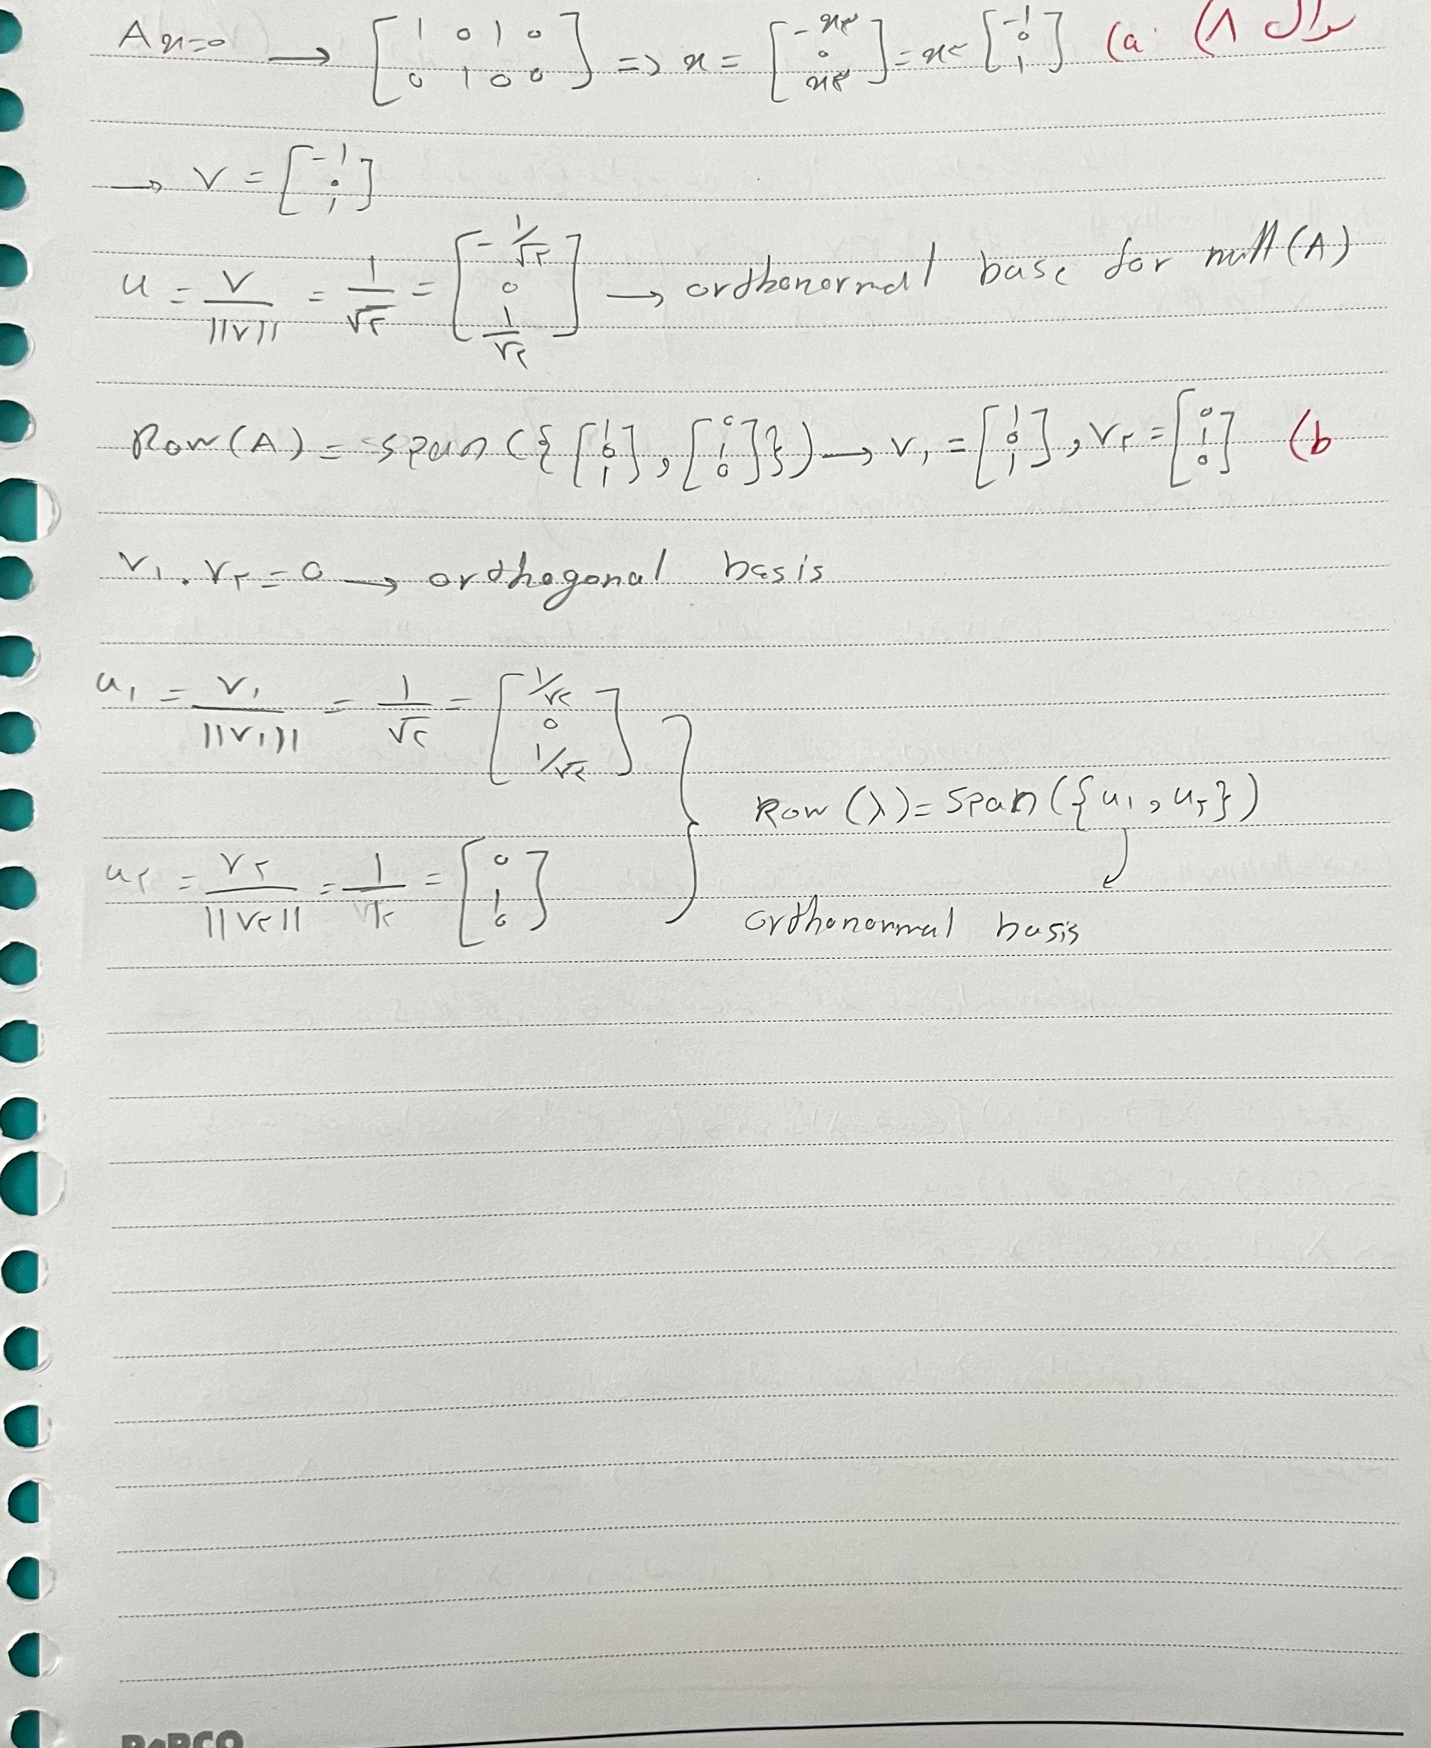 سوال ۸) a) Ax=0 → [1 0 1 0; 0 1 0 0] => x = [-x۳; 0; x۳] = x۳ [-1; 0; 1]
→ v = [-1; 0; 1]
u = v/||v|| = 1/√۲ = [-1/√۲; 0; 1/√۲] → orthonormal base for null(A)
b) Row(A) = span({[1; 0; 1], [0; 1; 0]}) → v₁ = [1; 0; 1], v۲ = [0; 1; 0]
v₁ . v۲ = 0 → orthogonal basis
u₁ = v₁/||v₁|| = 1/√۲ = [1/√۲; 0; 1/√۲]
Row (λ) = span({u₁, u۲})
u۲ = v۲/||v۲|| = = [0; 1; 0]
orthonormal basis
PAPCO